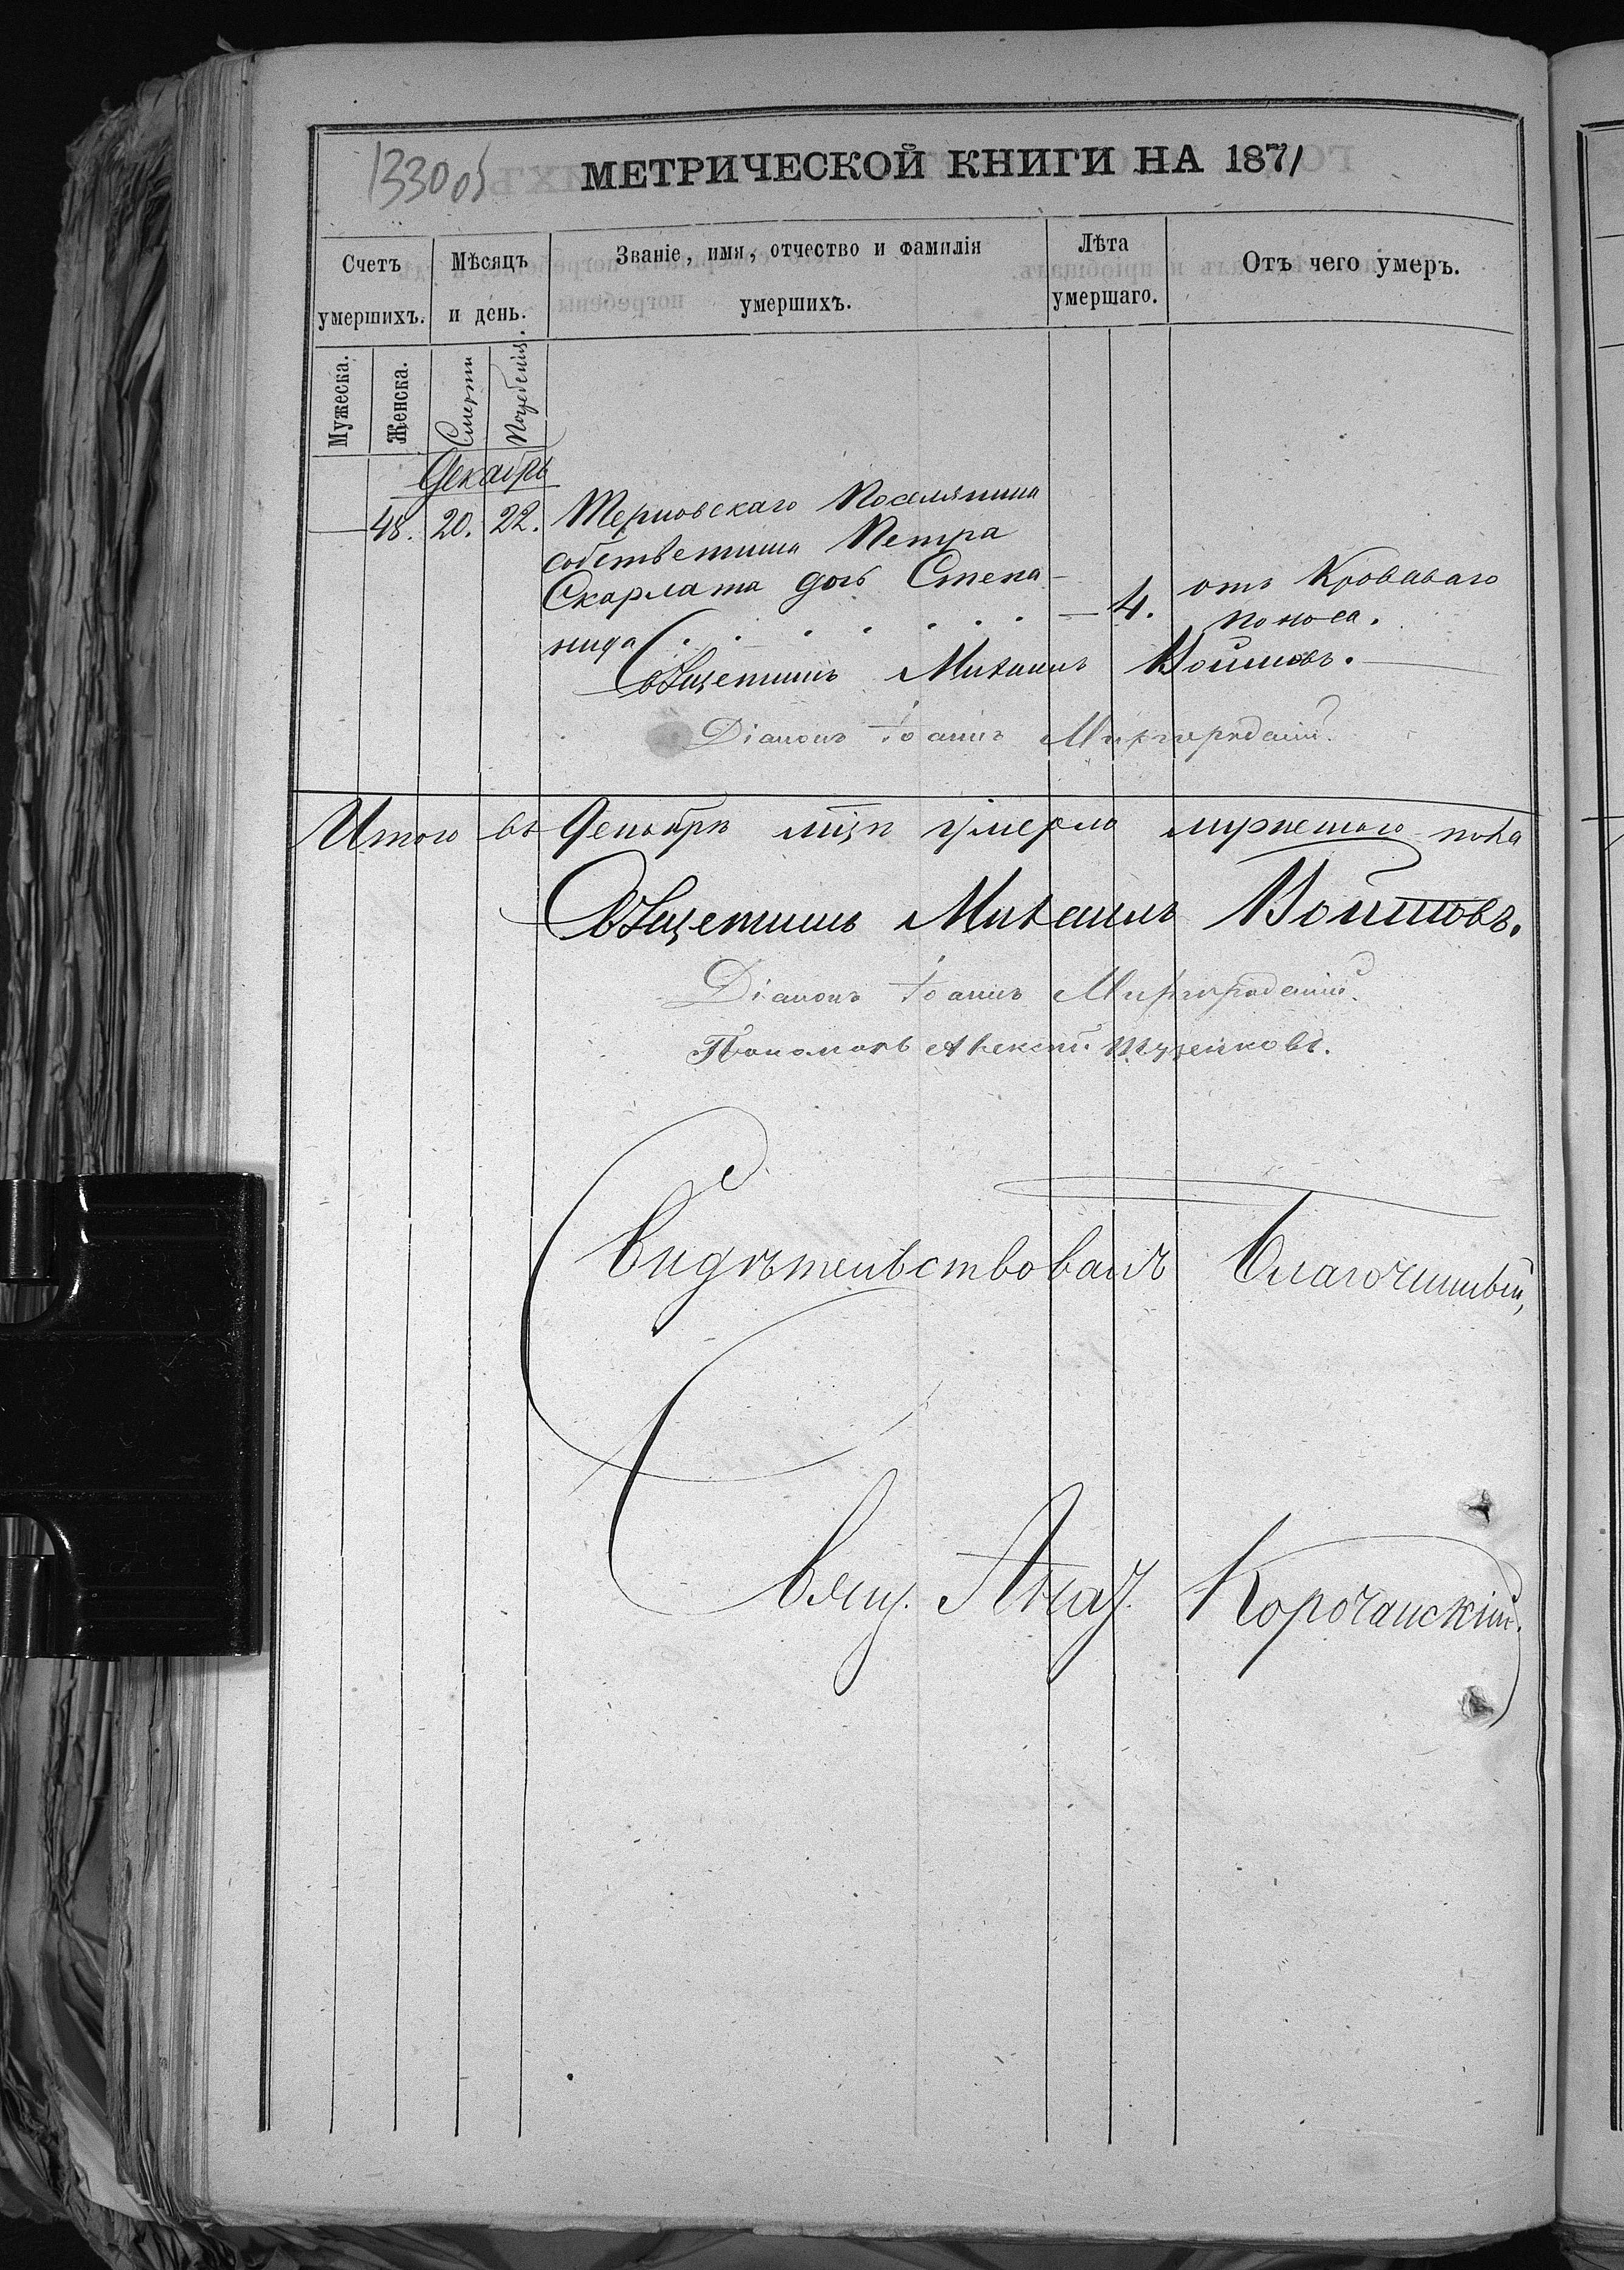 1330 об
МЕТРИЧЕСКОЙ КНИГИ НА 1871
Счетъ умершихъ.
Мѣсяцъ и день.
Званіе, имя, отчество и фамилія умершихъ.
Лѣта умершаго.
Отъ чего умеръ.
Мужеска.
Женска.
Смерти
Погребенія.
Декабрь
48. 20. 22. Терновскаго Поселянина
собственника Петра
Скарлата дочь Степа-
нида . . . . . . . — 4. отъ Кроваваго
поноса.
Священникъ Михаилъ Войновъ.
Діаконъ Іоаннъ Миргородскій.
Итого въ Декабрѣ мцѣ умерло мужескаго пола
Священникъ Михаилъ Войновъ.
Діаконъ Іоаннъ Миргородскій.
Пономарь Алексѣй
Свидѣтельствовалъ Благочинный,
Свящ. Корочанскій.